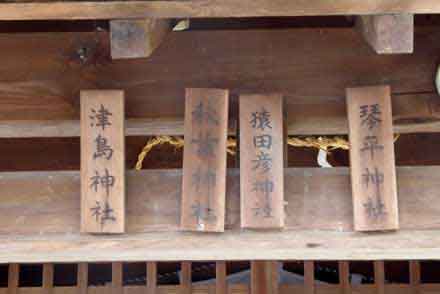 津島神社
秋葉神社
猿田彦神社
琴平神社